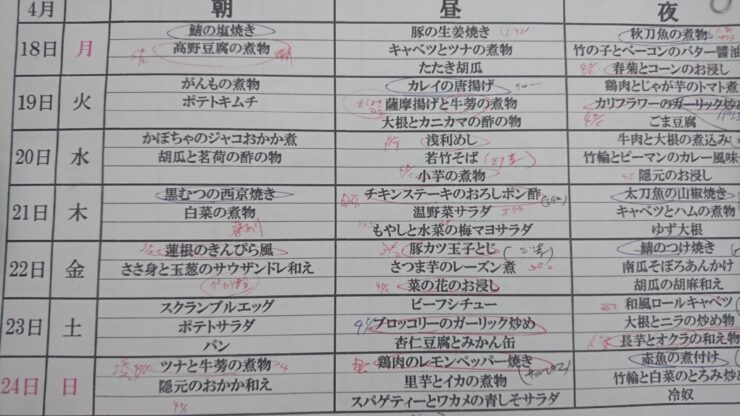 4月 朝 昼 夜
18日 月
鯖の塩焼き
高野豆腐の煮物
豚の生姜焼き
キャベツとツナの煮物
たたき胡瓜
秋刀魚の煮物
竹の子とベーコンのバター醤油
春菊とコーンのお浸し
19日 火
がんもの煮物
ポテトキムチ
カレイの唐揚げ
薩摩揚げと牛蒡の煮物
大根とカニカマの酢の物
鶏肉とじゃが芋のトマト煮
カリフラワーのガーリック炒め
ごま豆腐
20日 水
かぼちゃのジャコおかか煮
胡瓜と茗荷の酢の物
浅利めし
若竹そば
小芋の煮物
牛肉と大根の煮込み
竹輪とピーマンのカレー風味
隠元のお浸し
21日 木
黒むつの西京焼き
白菜の煮物
チキンステーキのおろしポン酢
温野菜サラダ
もやしと水菜の梅マヨサラダ
太刀魚の山椒焼き
キャベツとハムの煮物
ゆず大根
22日 金
蓮根のきんぴら風
ささ身と玉葱のサウザンドレ和え
豚カツ玉子とじ
さつま芋のレーズン煮
菜の花のお浸し
鯖のつけ焼き
南瓜そぼろあんかけ
胡瓜の胡麻和え
23日 土
スクランブルエッグ
ポテトサラダ
パン
ビーフシチュー
ブロッコリーのガーリック炒め
杏仁豆腐とみかん缶
和風ロールキャベツ
大根とニラの炒め物
長芋とオクラの和え物
24日 日
ツナと牛蒡の煮物
隠元のおかか和え
鶏肉のレモンペッパー焼き
里芋とイカの煮物
スパゲティーとワカメの青しそサラダ
赤魚の煮付け
竹輪と白菜のとろみ炒め
冷奴